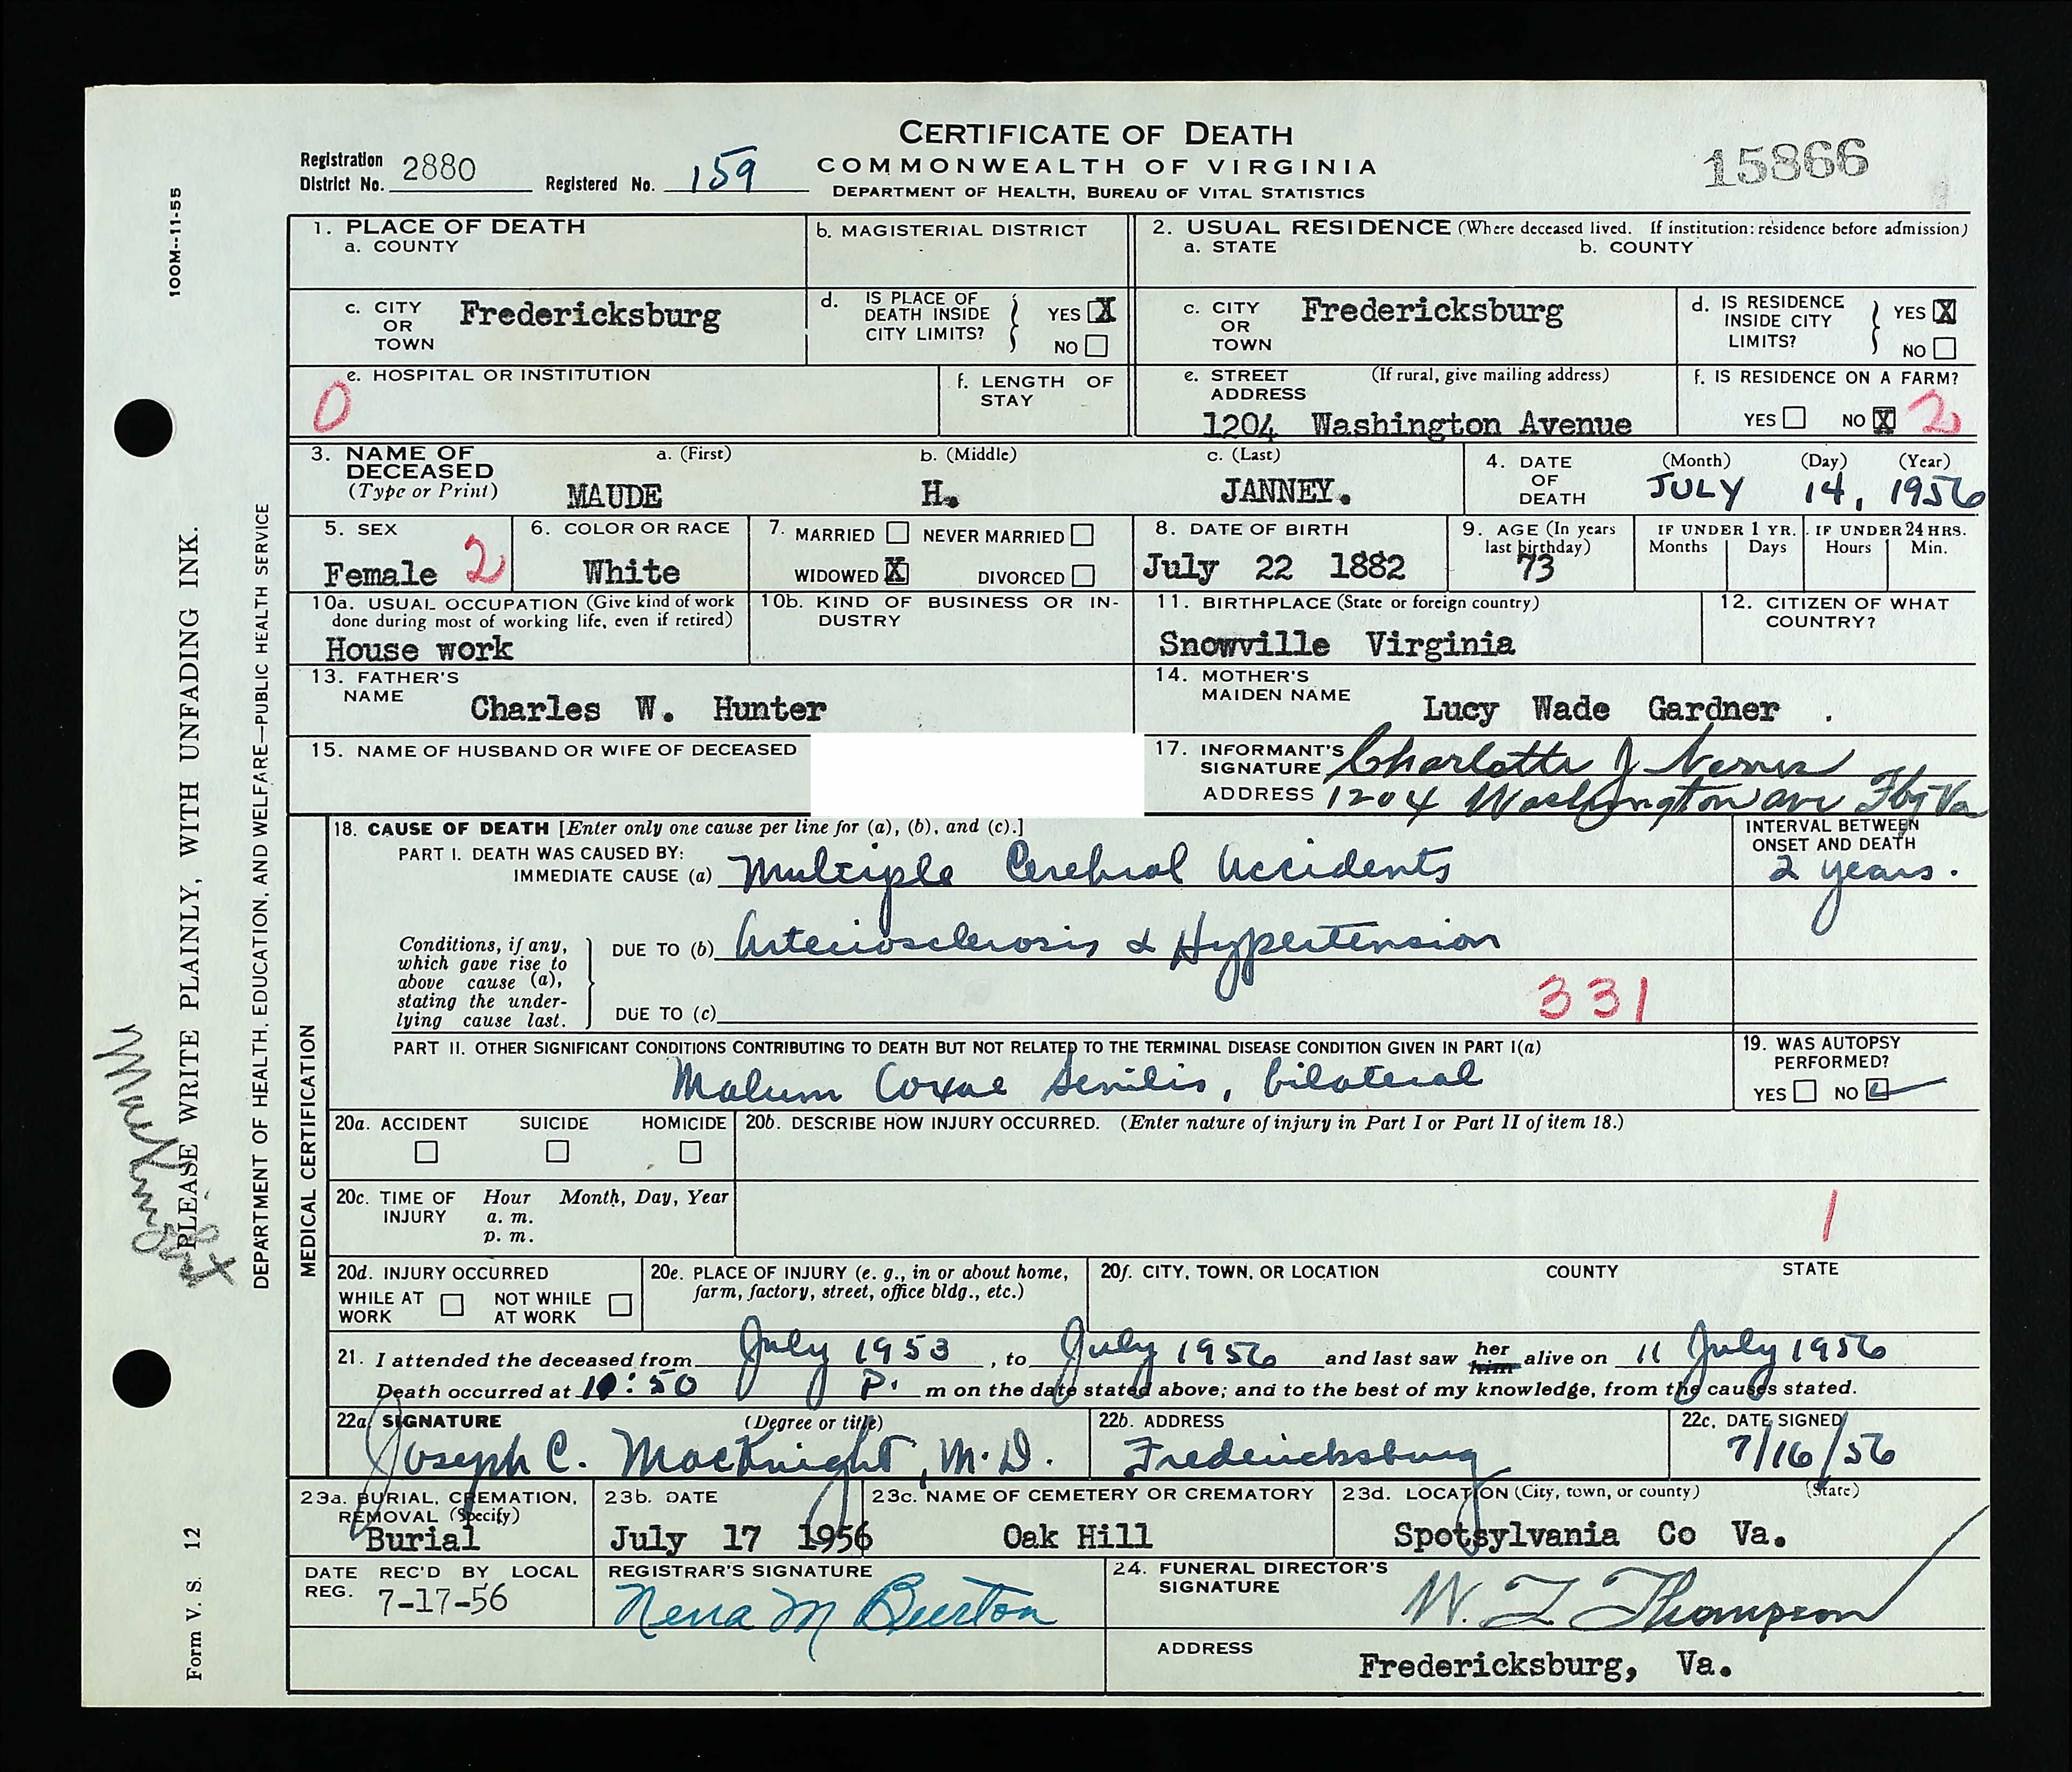 CERTIFICATE OF DEATH
COMMONWEALTH OF VIRGINIA
DEPARTMENT OF HEALTH, BUREAU OF VITAL STATISTICS
Registration District No. 2880 Registered No. 159
15866
100M--11-55
PLEASE WRITE PLAINLY, WITH UNFADING INK.
DEPARTMENT OF HEALTH, EDUCATION, AND WELFARE—PUBLIC HEALTH SERVICE
Form V. S. 12
1. PLACE OF DEATH
a. COUNTY
b. MAGISTERIAL DISTRICT
2. USUAL RESIDENCE (Where deceased lived. If institution: residence before admission)
a. STATE b. COUNTY
c. CITY OR TOWN Fredericksburg
d. IS PLACE OF DEATH INSIDE CITY LIMITS? YES X NO
c. CITY OR TOWN Fredericksburg
d. IS RESIDENCE INSIDE CITY LIMITS? YES X NO
e. HOSPITAL OR INSTITUTION
0
f. LENGTH OF STAY
e. STREET ADDRESS (If rural, give mailing address)
1204 Washington Avenue
f. IS RESIDENCE ON A FARM?
YES NO X 2
3. NAME OF DECEASED (Type or Print)
a. (First) b. (Middle) c. (Last)
MAUDE H. JANNEY.
4. DATE OF DEATH (Month) (Day) (Year)
JULY 14, 1956
5. SEX
Female 2
6. COLOR OR RACE
White
7. MARRIED NEVER MARRIED
WIDOWED X DIVORCED
8. DATE OF BIRTH
July 22 1882
9. AGE (In years last birthday)
73
IF UNDER 1 YR. Months Days
IF UNDER 24 HRS. Hours Min.
10a. USUAL OCCUPATION (Give kind of work done during most of working life, even if retired)
House work
10b. KIND OF BUSINESS OR INDUSTRY
11. BIRTHPLACE (State or foreign country)
Snowville Virginia
12. CITIZEN OF WHAT COUNTRY?
13. FATHER'S NAME
Charles W. Hunter
14. MOTHER'S MAIDEN NAME
Lucy Wade Gardner .
15. NAME OF HUSBAND OR WIFE OF DECEASED
17. INFORMANT'S SIGNATURE Charlotte J
ADDRESS 1204 Washington Ave Fbg Va
MEDICAL CERTIFICATION
18. CAUSE OF DEATH [Enter only one cause per line for (a), (b), and (c).]
INTERVAL BETWEEN ONSET AND DEATH
PART I. DEATH WAS CAUSED BY:
IMMEDIATE CAUSE (a) Multiple Cerebral Accidents
2 years.
Conditions, if any, which gave rise to above cause (a), stating the underlying cause last.
DUE TO (b) Arteriosclerosis & Hypertension
DUE TO (c)
331
PART II. OTHER SIGNIFICANT CONDITIONS CONTRIBUTING TO DEATH BUT NOT RELATED TO THE TERMINAL DISEASE CONDITION GIVEN IN PART I(a)
Malum Coxae Senilis, bilateral
19. WAS AUTOPSY PERFORMED?
YES NO
20a. ACCIDENT SUICIDE HOMICIDE
20b. DESCRIBE HOW INJURY OCCURRED. (Enter nature of injury in Part I or Part II of item 18.)
20c. TIME OF INJURY Hour Month, Day, Year
a. m.
p. m.
1
20d. INJURY OCCURRED
WHILE AT WORK NOT WHILE AT WORK
20e. PLACE OF INJURY (e. g., in or about home, farm, factory, street, office bldg., etc.)
20f. CITY, TOWN, OR LOCATION COUNTY STATE
21. I attended the deceased from July 1953, to July 1956 and last saw her him alive on 11 July 1956
Death occurred at 10:50 P. m on the date stated above; and to the best of my knowledge, from the causes stated.
22a. SIGNATURE (Degree or title)
Joseph C. MacKnight, M.D.
22b. ADDRESS
Fredericksburg
22c. DATE SIGNED
7/16/56
23a. BURIAL, CREMATION, REMOVAL (Specify)
Burial
23b. DATE
July 17 1956
23c. NAME OF CEMETERY OR CREMATORY
Oak Hill
23d. LOCATION (City, town, or county) (State)
Spotsylvania Co Va.
DATE REC'D BY LOCAL REG. 7-17-56
REGISTRAR'S SIGNATURE
Nena M Burton
24. FUNERAL DIRECTOR'S SIGNATURE
W. L Thompson
ADDRESS
Fredericksburg, Va.
MacKnight